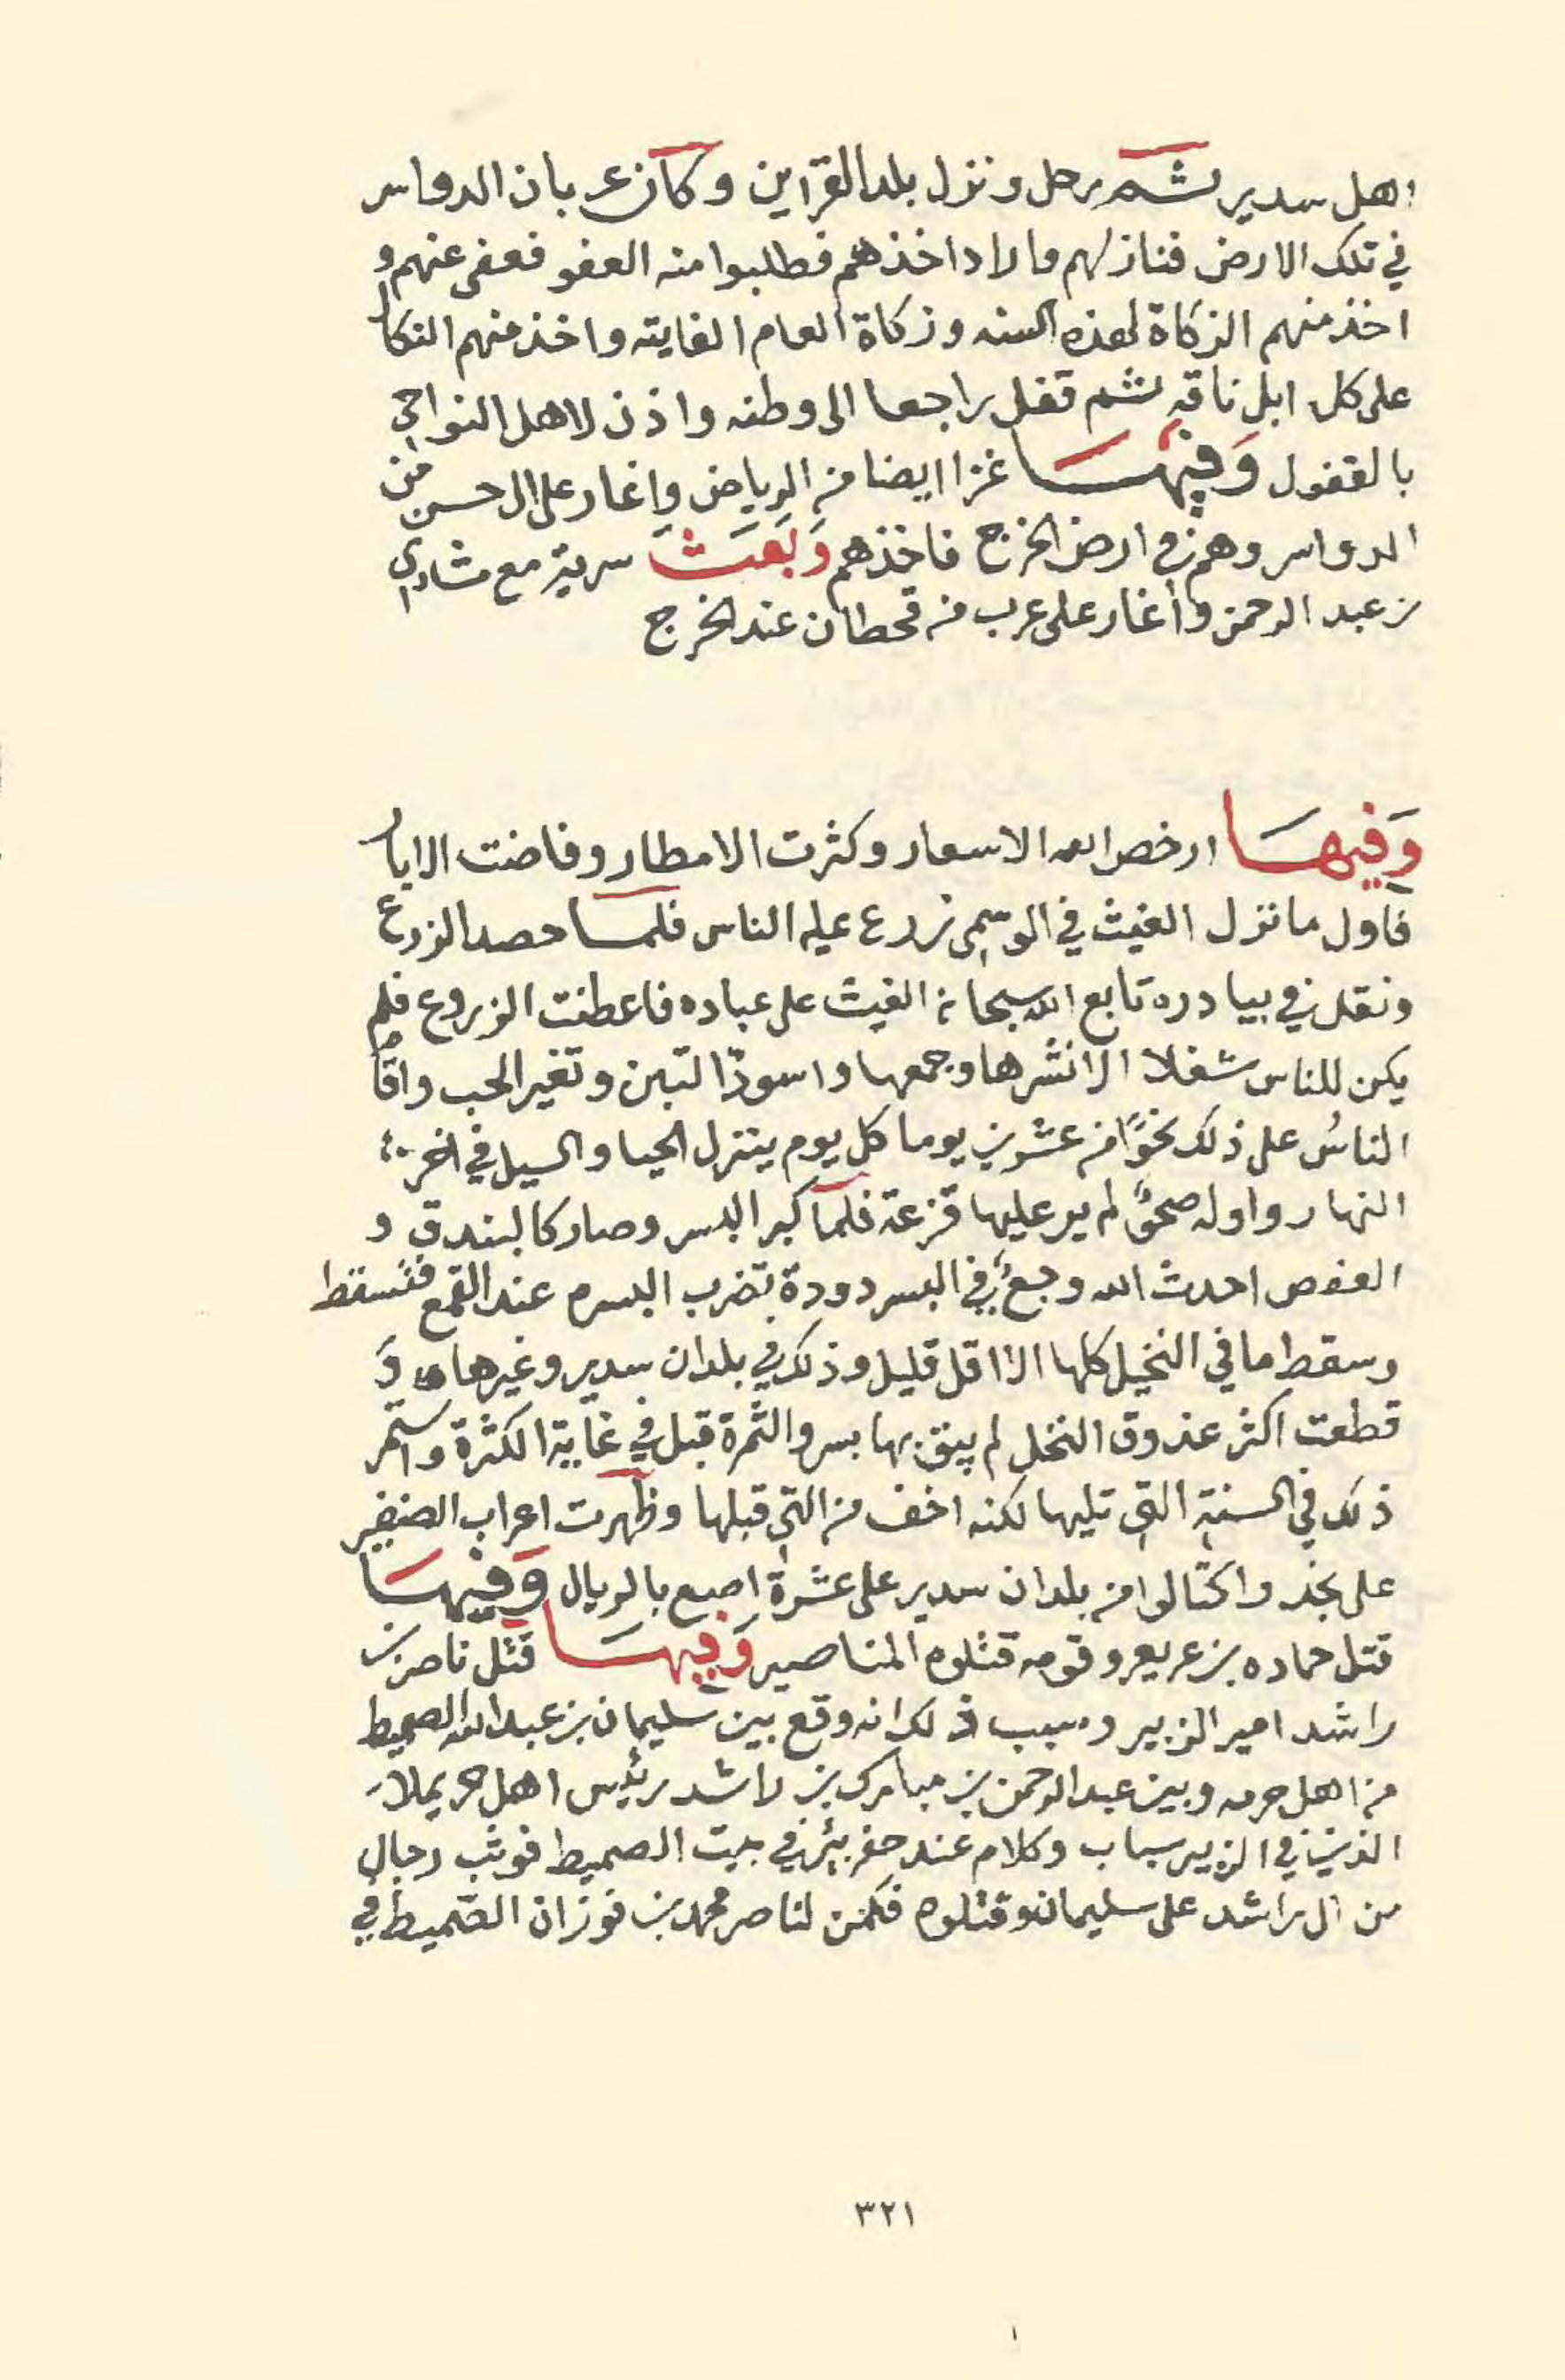 اهل سدير ثم رحل ونزل بلد القراين وكان عربان الدواسر
في تلك الارض فنازلهم واراد اخذهم فطلبوا منه العفو فعفى عنهم و
اخذ منهم الزكاة لهذه السنه وزكاة العام الفايته واخذ منهم النكال
على كل ابل ناقه ثم قفل راجعا الى وطنه واذن لاهل النواحي
بالقفول وَفيهَا غزا ايضا من الرياض واغار على ال حسن من
الدواسر وهم في ارض الخرج فاخذهم وَبَعَثَ سرية مع مشاري
بن عبد الرحمن واغار على عرب من قحطان عند الخرج
وَفيهَا ارخص الله الاسعار وكثرت الامطار وفاضت الابار
فاول ما نزل الغيث في الوسمي زرع عليه الناس فلما حصد الزرع
ونقل في بيادره تابع الله سبحانه الغيث على عباده فاعطنت الزروع فلم
يكن للناس شغلا الا نشرها وجمعها واسودّ التبن وتغير الحب واقام
الناسُ على ذلك نحوًا من عشرين يوما كل يوم ينزل الحيا والسيل في اخر
النهار واوله صحوٌ لم ير عليها قزعة فلما كبر البسر وصار كالبندق و
العفص احدث الله وجعٌ في البسر دودة تضرب البسره عند القمع فتسقط
وسقط ما في النخيل كلها الا اقل قليل وذلك في بلدان سدير وغيرها وَ
قطعت اكثر عذوق النخل لم يبق بها بسر والثمرة قبل في غاية الكثرة واستمر
ذلك في السنة التي تليها لكنه اخف من التي قبلها وظهرت اعراب الضفير
على نجد واكتالوا من بلدان سدير على عشرة اصع بالريال وَفيهَا
قتل حماده بن عريعر وقومه قتلوه المناصير وَفيهَا قتل ناصر بن
راشد امير الزبير وسبب ذلك انه وقع بين سليمان بن عبد الله الصميط
من اهل حرمه وبين عبد الرحمن بن مبارك بن راشد رئيس اهل حريملا
الذين في الزبير سباب وكلام عند حفر بئر في بيت الصميط فوثب رجال
من ال راشد على سليمان وقتلوه فكمن لناصر محمد بن فوزان الصّميط في
٣٢١